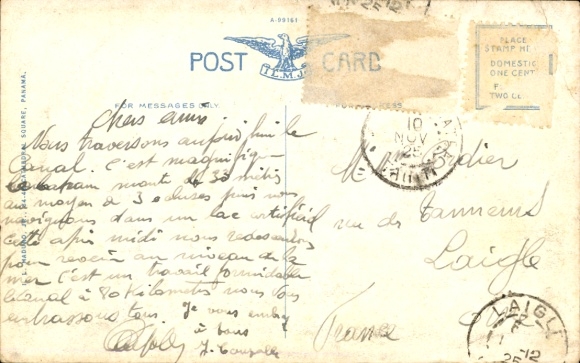 A-99161
POST CARD
I.L.M.JR.
FOR MESSAGES ONLY.
I. L. MADURO, JR., CATHEDRAL SQUARE, PANAMA.
PLACE
STAMP HE
DOMESTIC
ONE CENT
F
TWO CE
10
NOV
25
Chers amis
Nous traversons aujourd'hui le
Canal. C'est magnifique
monte de 33 mètres
au moyen de 3 écluses puis nous
naviguons dans un lac artificiel
cette après midi nous redescendons
pour revenir au niveau de la
mer c'est un travail formidable
Canal à 80 Kilometres nous vous
embrassons tous. Je vous embrasse
à tous
J.
M
rue des Tanneurs
Laigle
France
LAIGLE
12
25